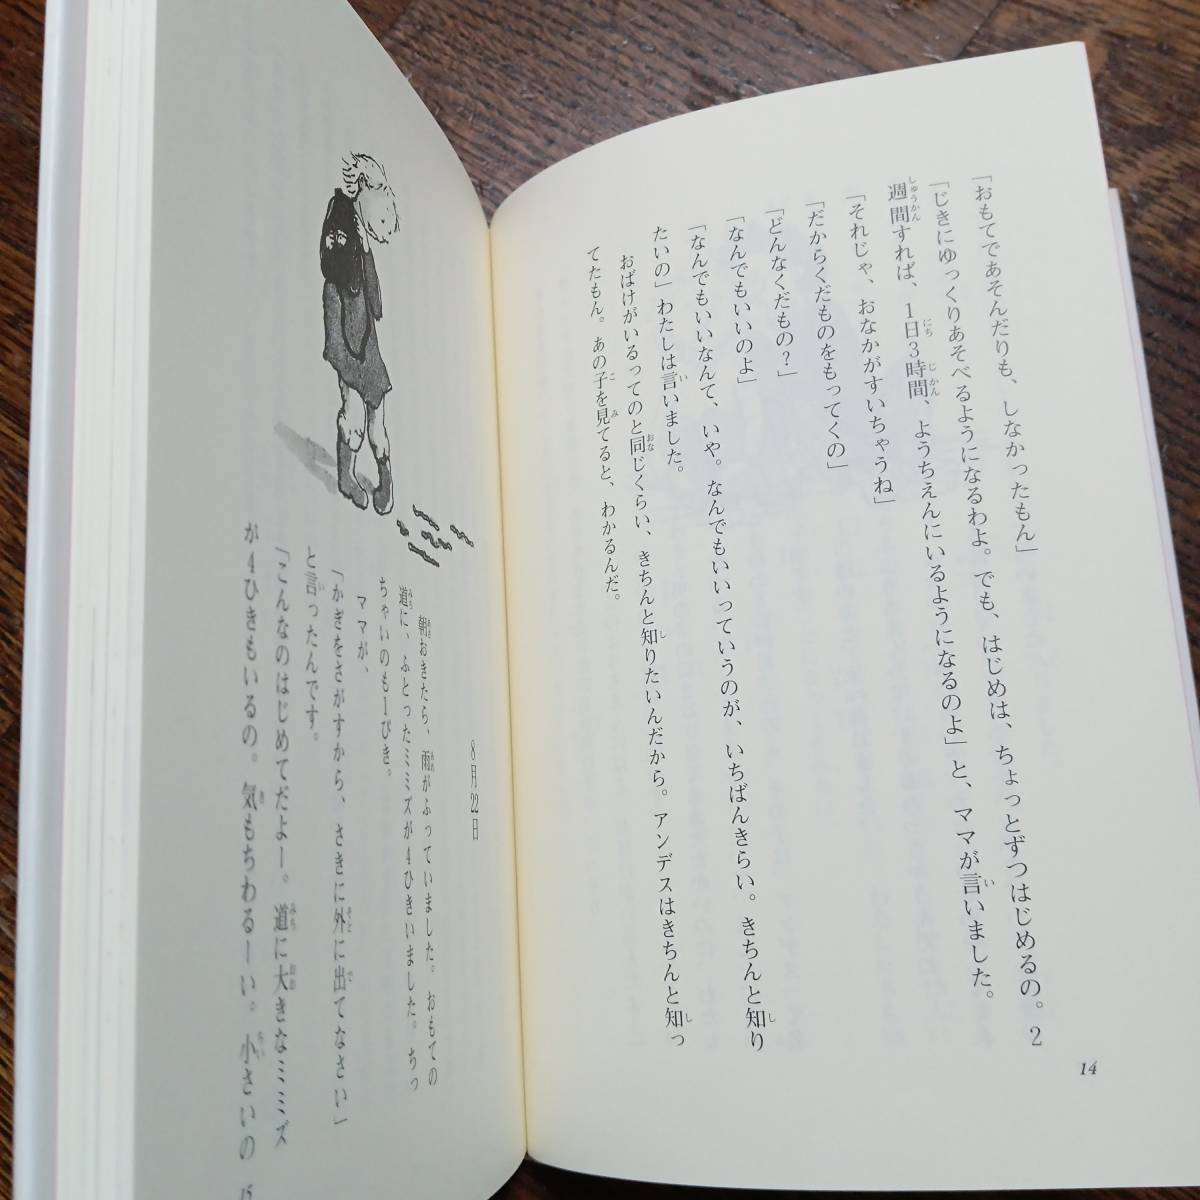 「おもてであそんだりも、しなかったもん」
「じきにゆっくりあそべるようになるわよ。でも、はじめは、ちょっとずつはじめるの。2
週間すれば、1日3時間、ようちえんにいるようになるのよ」と、ママが言いました。
「それじゃ、おなかがすいちゃうね」
「だからくだものをもってくの」
「どんなくだもの?」
「なんでもいいのよ」
「なんでもいいなんて、いや。なんでもいいっていうのが、いちばんきらい。きちんと知り
たいの」わたしは言いました。
おばけがいるってのと同じくらい、きちんと知りたいんだから。アンデスはきちんと知っ
てたもん。あの子を見てると、わかるんだ。
14
8月22日
朝おきたら、雨がふっていました。おもての
道に、ふとったミミズが4ひきいました。ちっ
ちゃいのも1ぴき。
ママが、
「かぎをさがすから、さきに外に出てなさい」
と言ったんです。
「こんなのはじめてだよー。道に大きなミミズ
が4ひきもいるの。気もちわるーい。小さいの
15